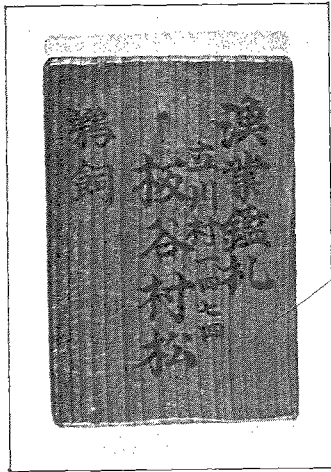 漁業鑑札
立川村一四七四
板谷村松
鵜飼